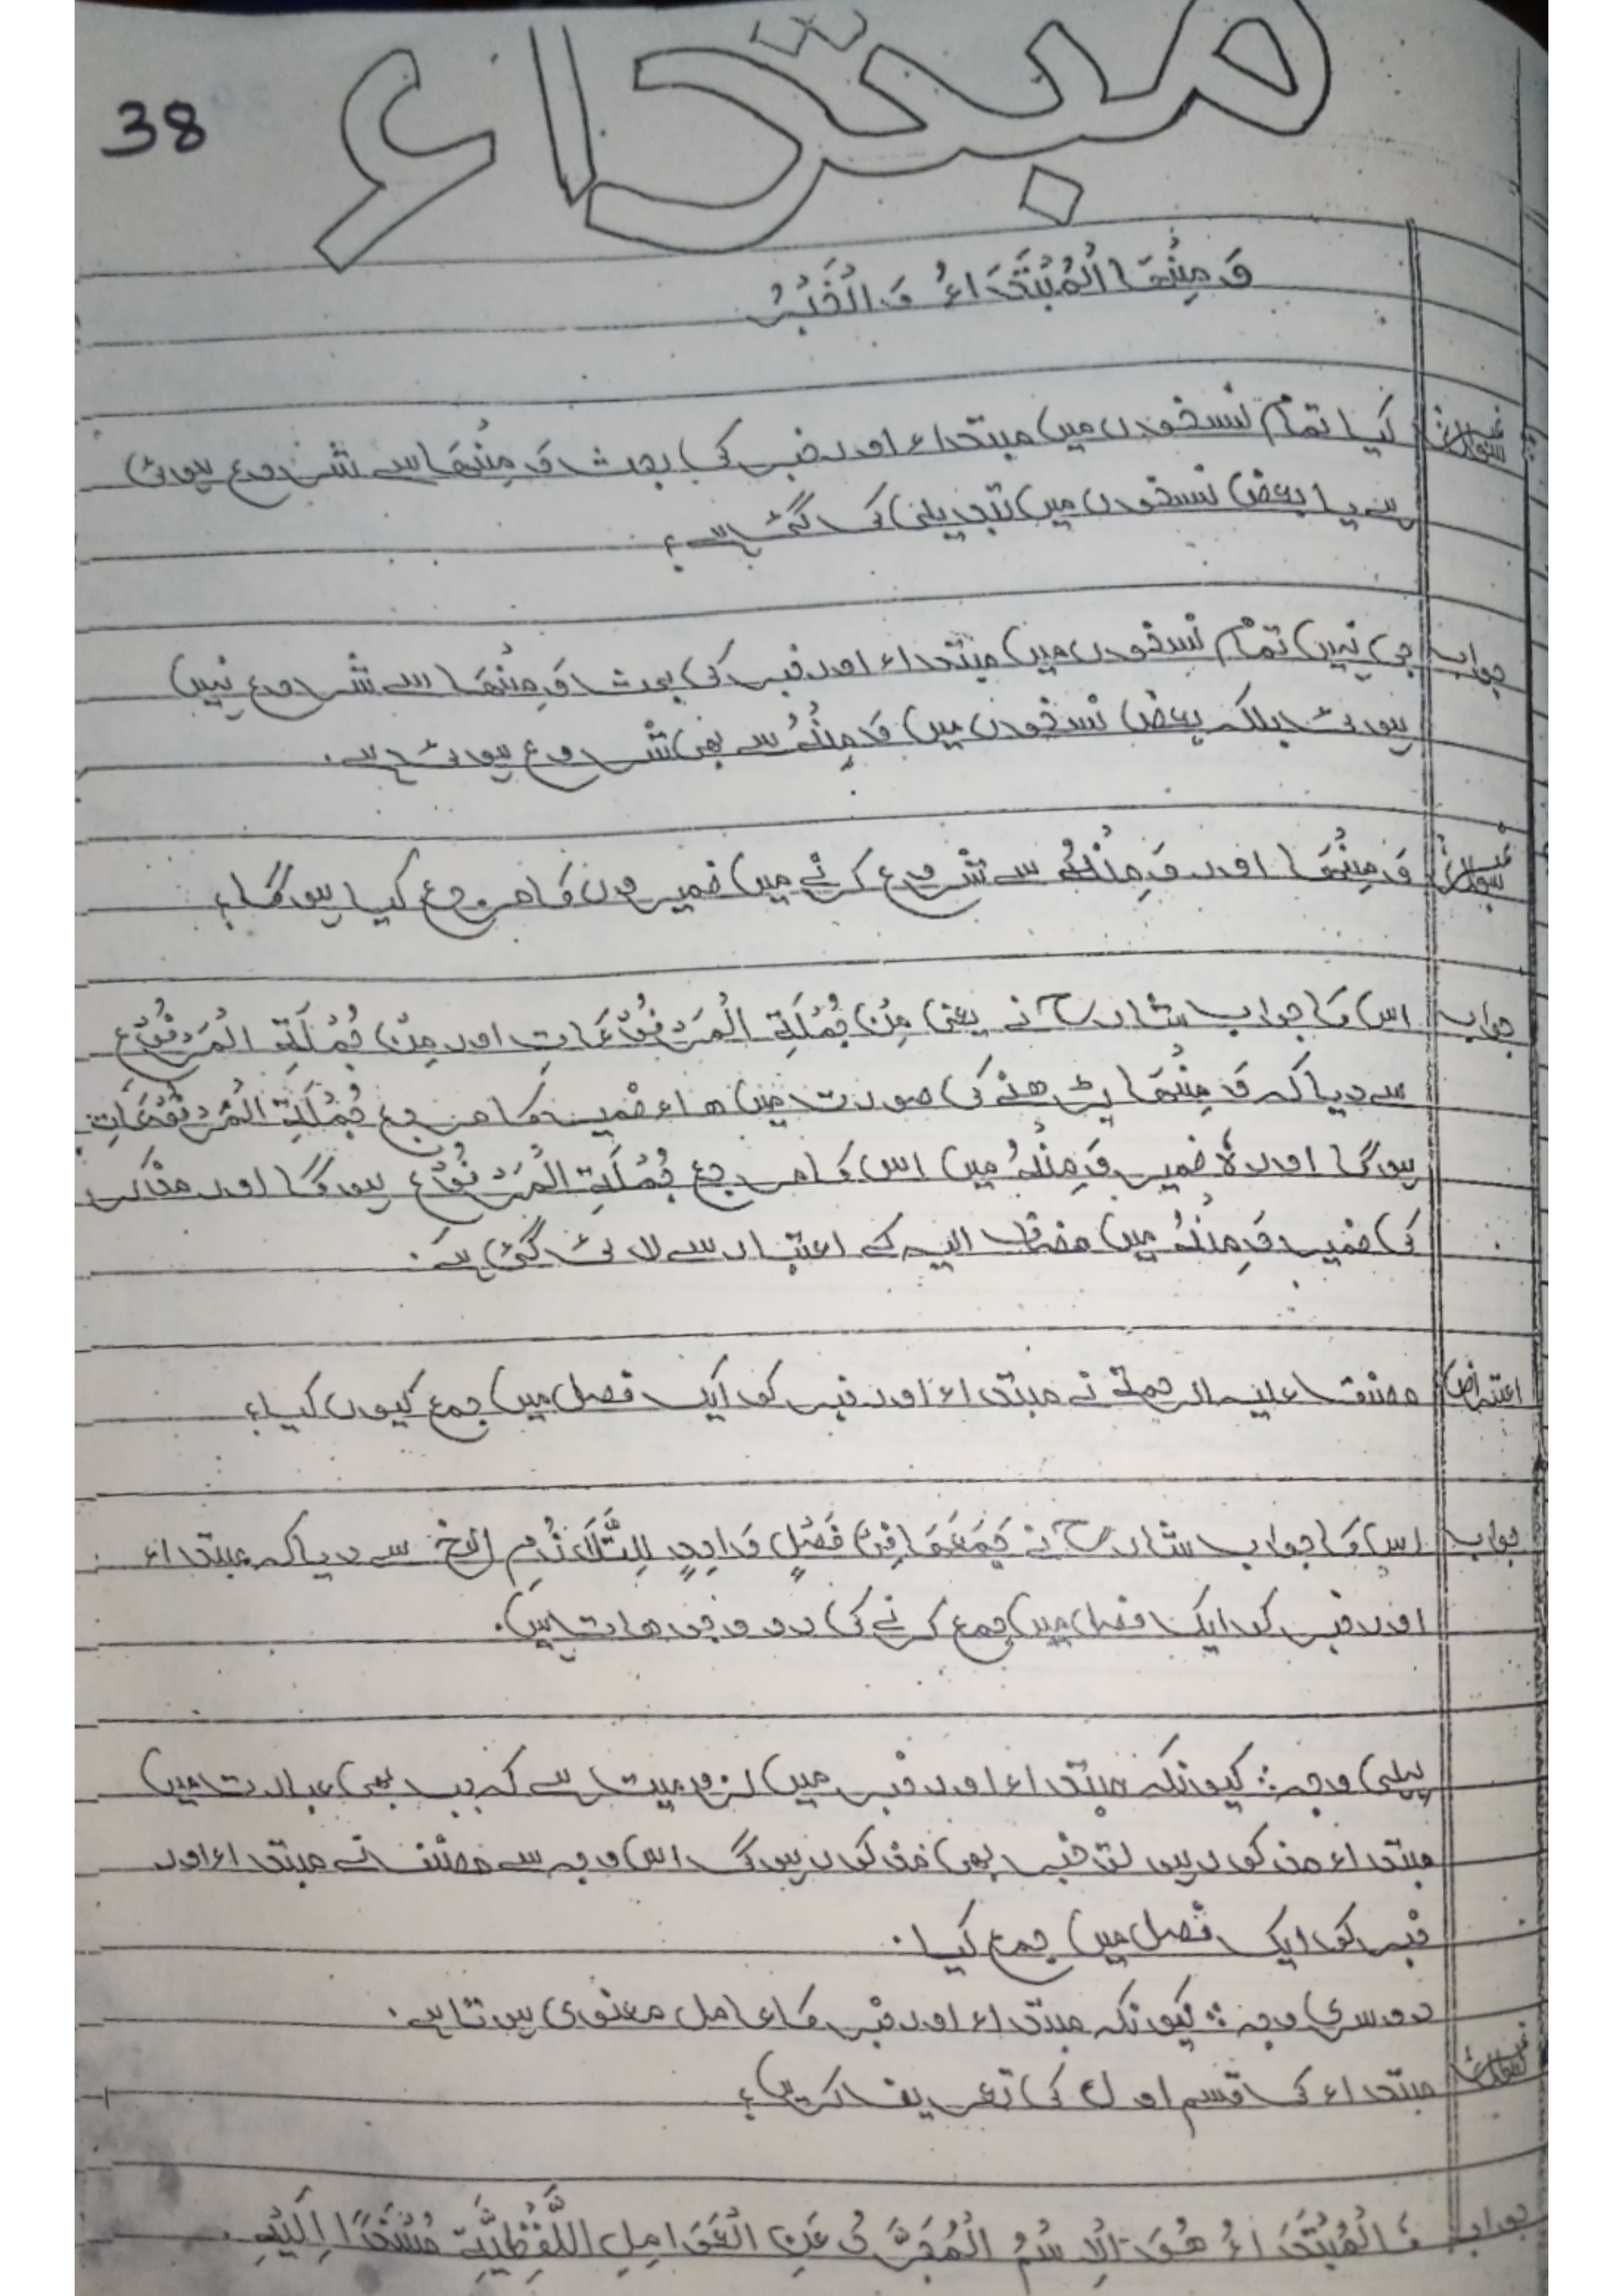 مبتداء
38
وَ مِنْهَا الْمُبْتَدَاءُ وَ الْخَبَرُ
سوال کیا تمام نسخوں میں مبتداء اور خبر کی بحث وَ مِنْهَا سے شروع ہوئی
ہے یا بعض نسخوں میں تبدیلی کی گئی ہے؟
جواب جی نہیں تمام نسخوں میں مبتداء اور خبر کی بحث وَ مِنْهَا سے شروع نہیں
ہوئی بلکہ بعض نسخوں میں وَ مِنْهُ سے بھی شروع ہوئی ہے۔
سوال وَ مِنْهَا اور وَ مِنْهُ سے شروع کرنے میں ضمیروں کا مرجع کیا ہوگا؟
جواب اس کا جواب شارح نے یعنی مِنْ جُمْلَةِ الْمَرْفُوْعَاتِ اور مِنْ جُمْلَةِ الْمَرْفُوْعِ
سے دیا کہ وَ مِنْهَا پڑھنے کی صورت میں ھاء ضمیر کا مرجع جُمْلَةِ الْمَرْفُوْعَاتِ
ہوگا اور ہٗ ضمیر وَ مِنْهُ میں اس کا مرجع جُمْلَةِ الْمَرْفُوْعِ ہوگا اور مذکر
کی ضمیر وَ مِنْهُ میں مضاف الیہ کے اعتبار سے لائی گئی ہے۔
اعتراض مصنف علیہ الرحمۃ نے مبتداء اور خبر کو ایک فصل میں جمع کیوں کیا؟
جواب اس کا جواب شارح نے جَمَعَهَا فِيْ فَصْلٍ وَاحِدٍ لِلتَّلَازُمِ الخ سے دیا کہ مبتداء
اور خبر کو ایک فصل میں جمع کرنے کی دو وجوہات ہیں۔
پہلی وجہ: کیونکہ مبتداء اور خبر میں لزومیت ہے کہ جب بھی عبارت میں
مبتداء مذکور ہو تو خبر بھی مذکور ہوگی اس وجہ سے مصنف نے مبتداء اور
خبر کو ایک فصل میں جمع کیا۔
دوسری وجہ: کیونکہ مبتداء اور خبر کا عامل معنوی ہوتا ہے۔
سوال مبتداء کی قسم اول کی تعریف کریں؟
جواب فَالْمُبْتَدَاءُ هُوَ الْاِسْمُ الْمُجَرَّدُ عَنِ الْعَوَامِلِ اللَّفْظِيَّةِ مُسْنَدًا اِلَيْهِ۔